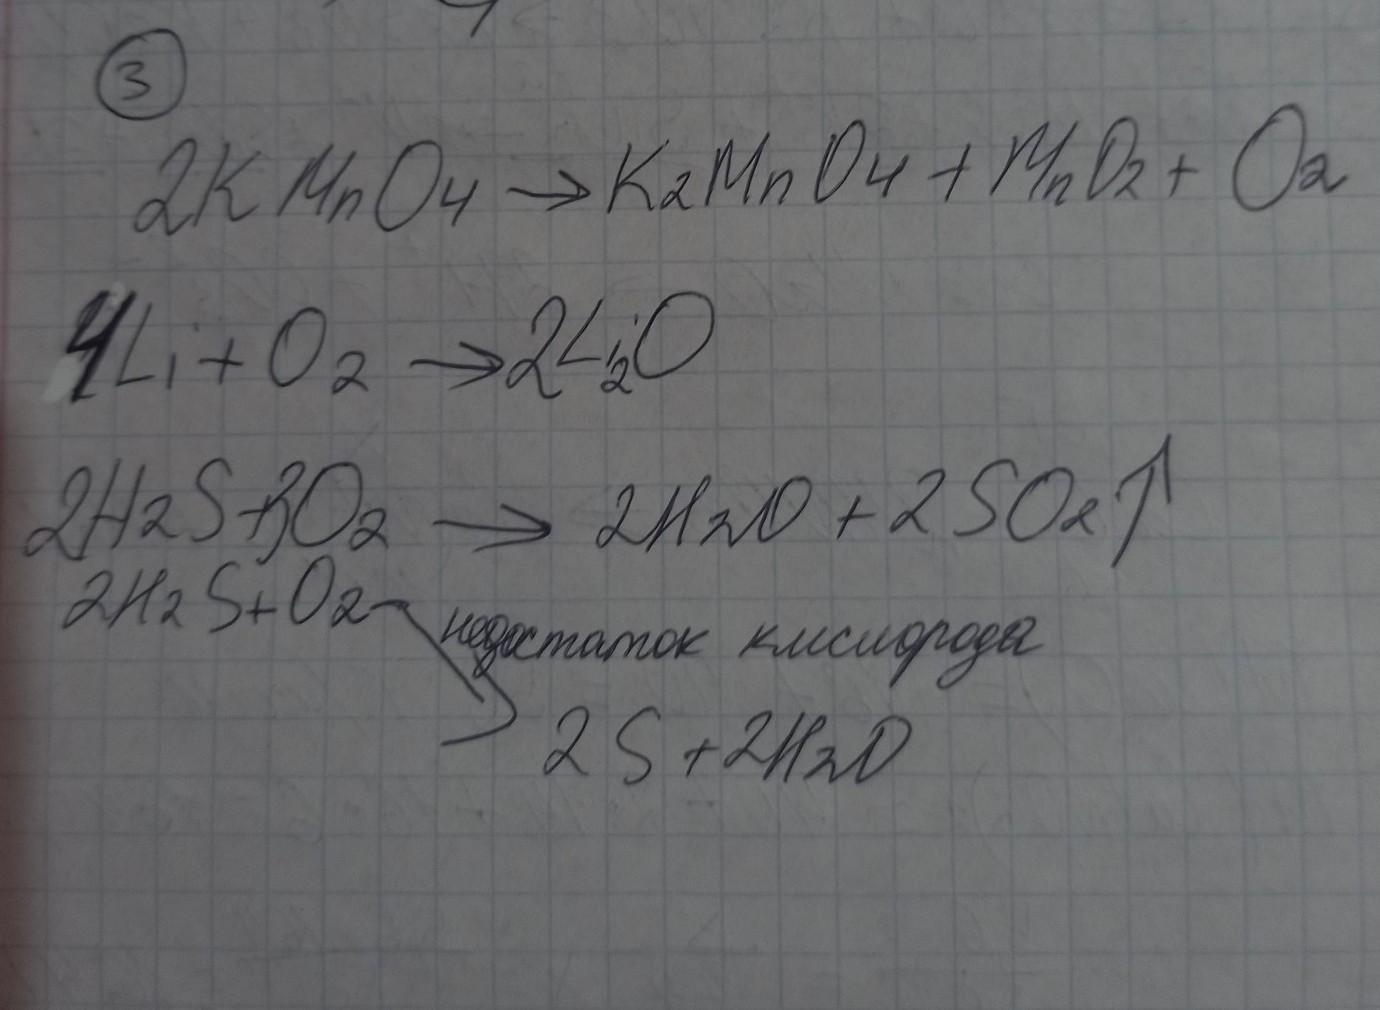 3
2KMnO4 → K2MnO4 + MnO2 + O2
4Li + O2 → 2Li2O
2H2S + 3O2 → 2H2O + 2SO2↑
2H2S + O2
недостаток кислорода
2S + 2H2O